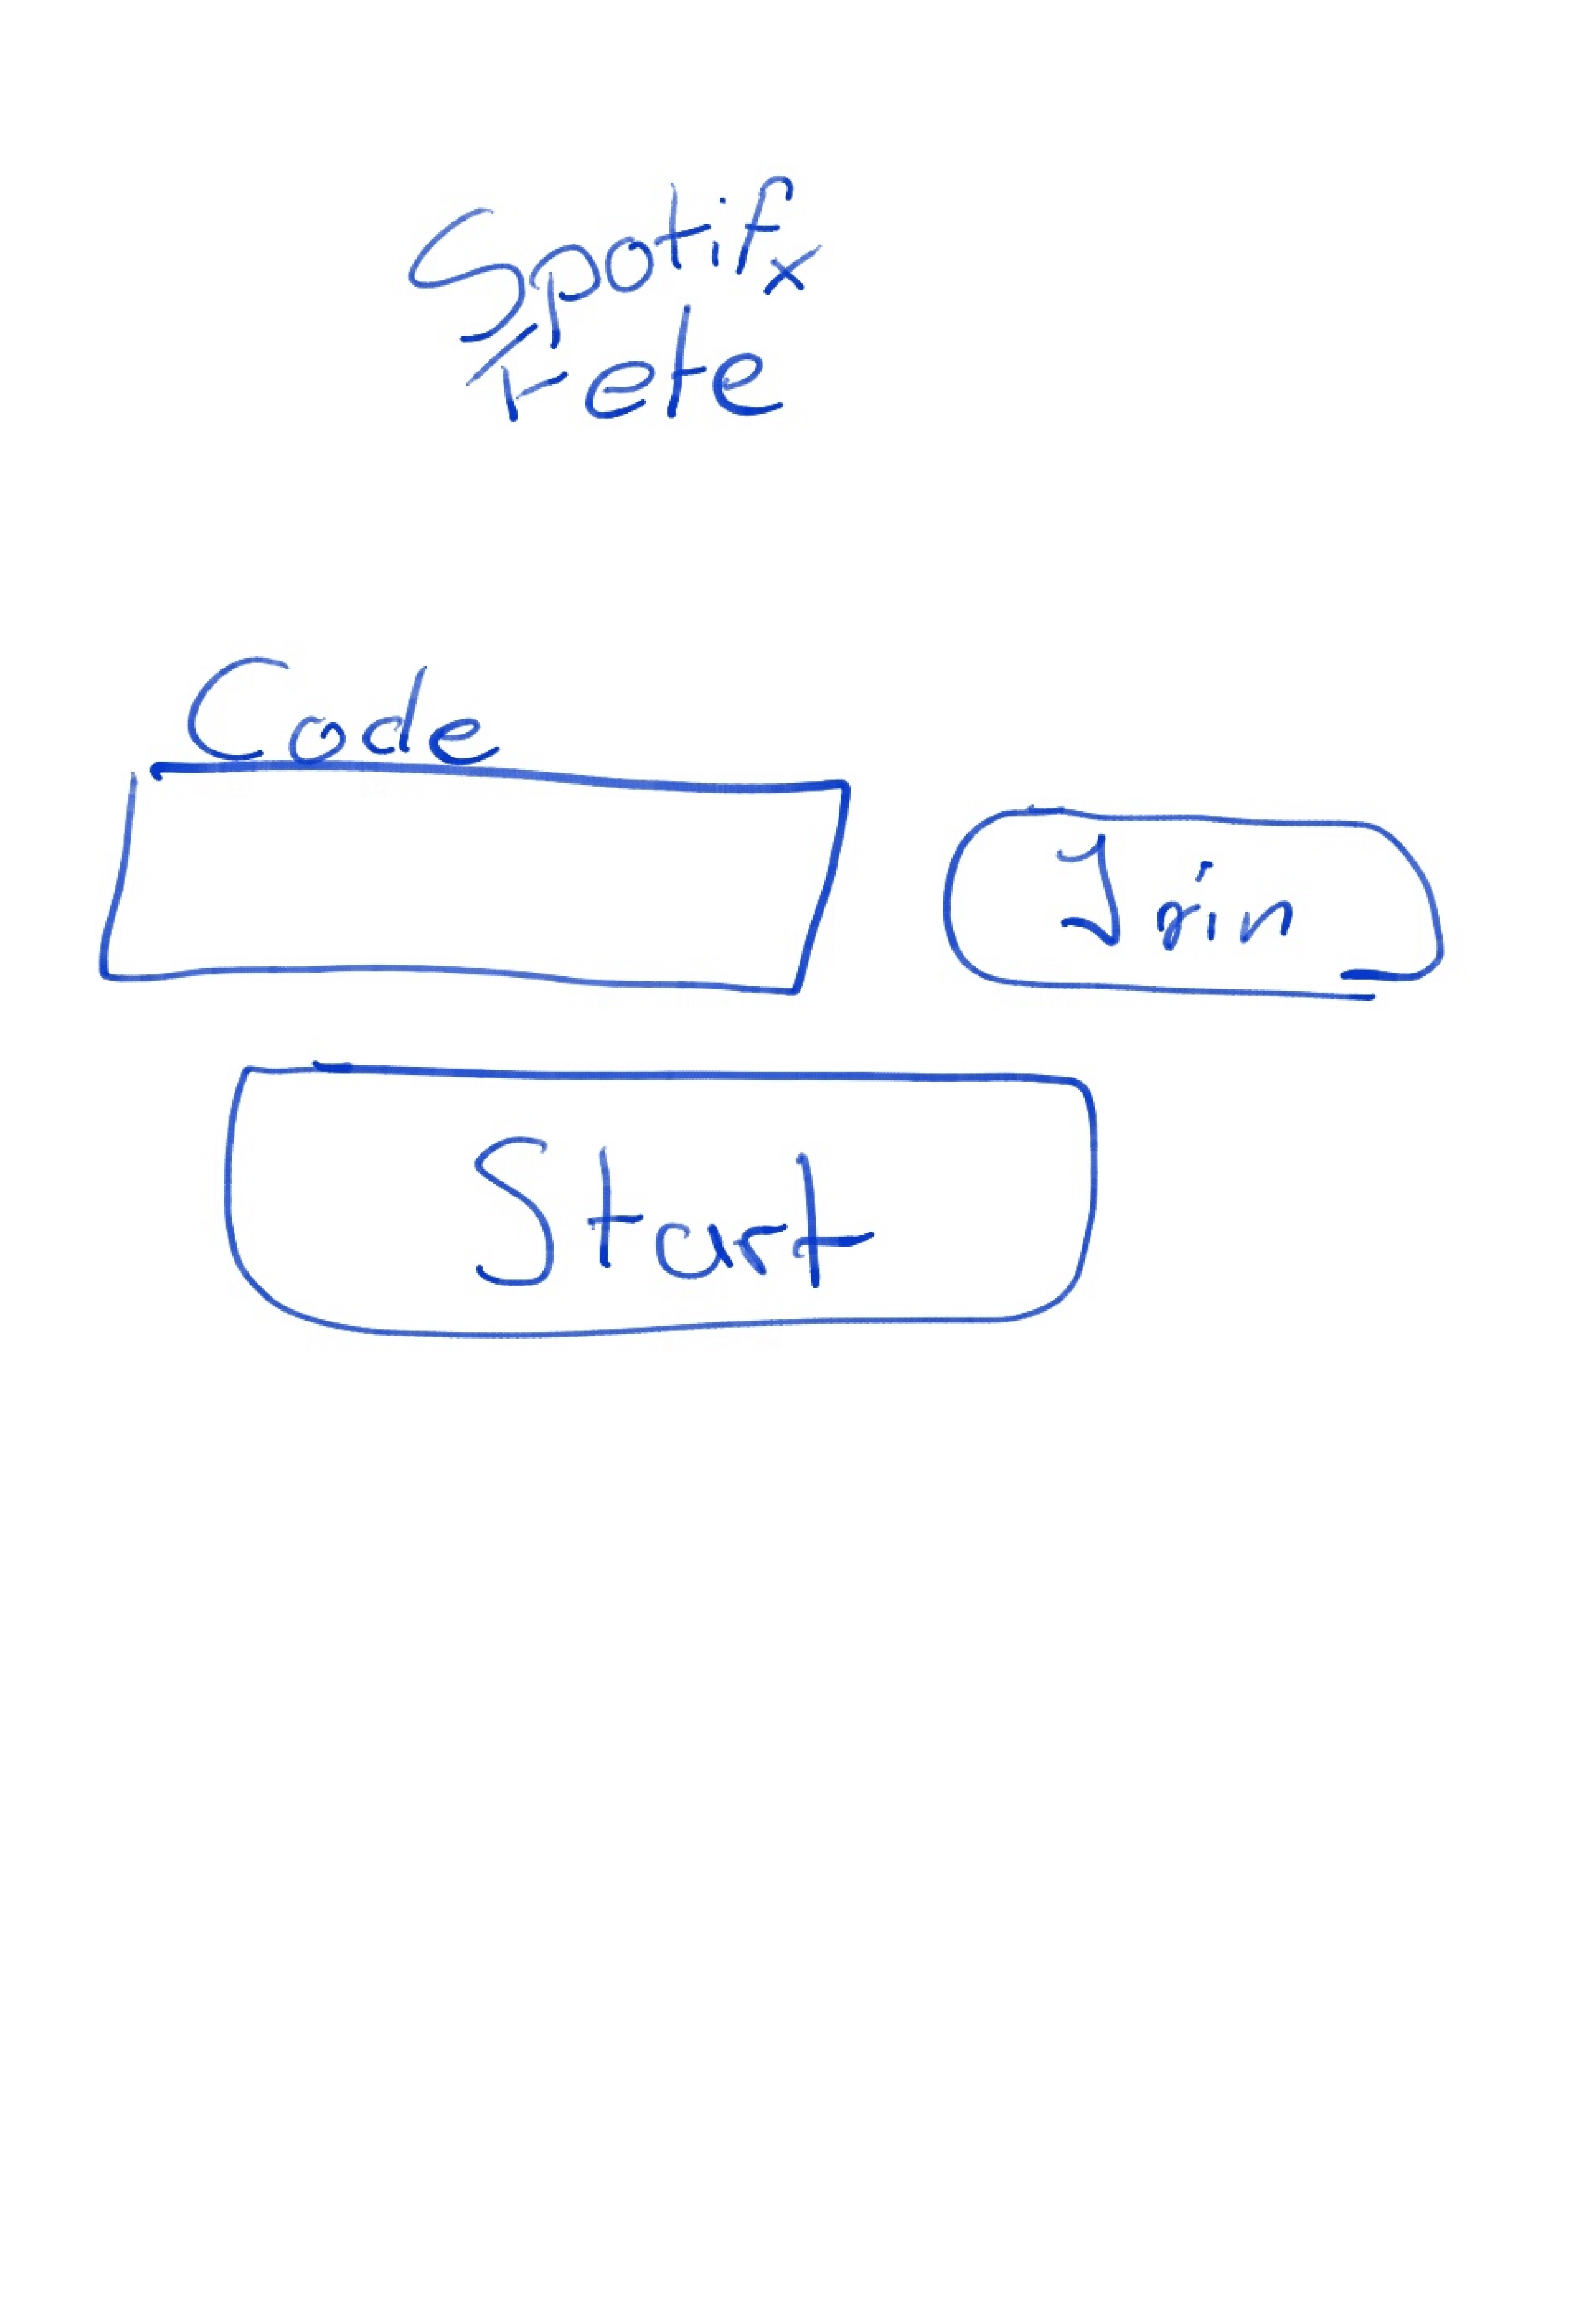 Spotify
Fete
Code
Join
Start